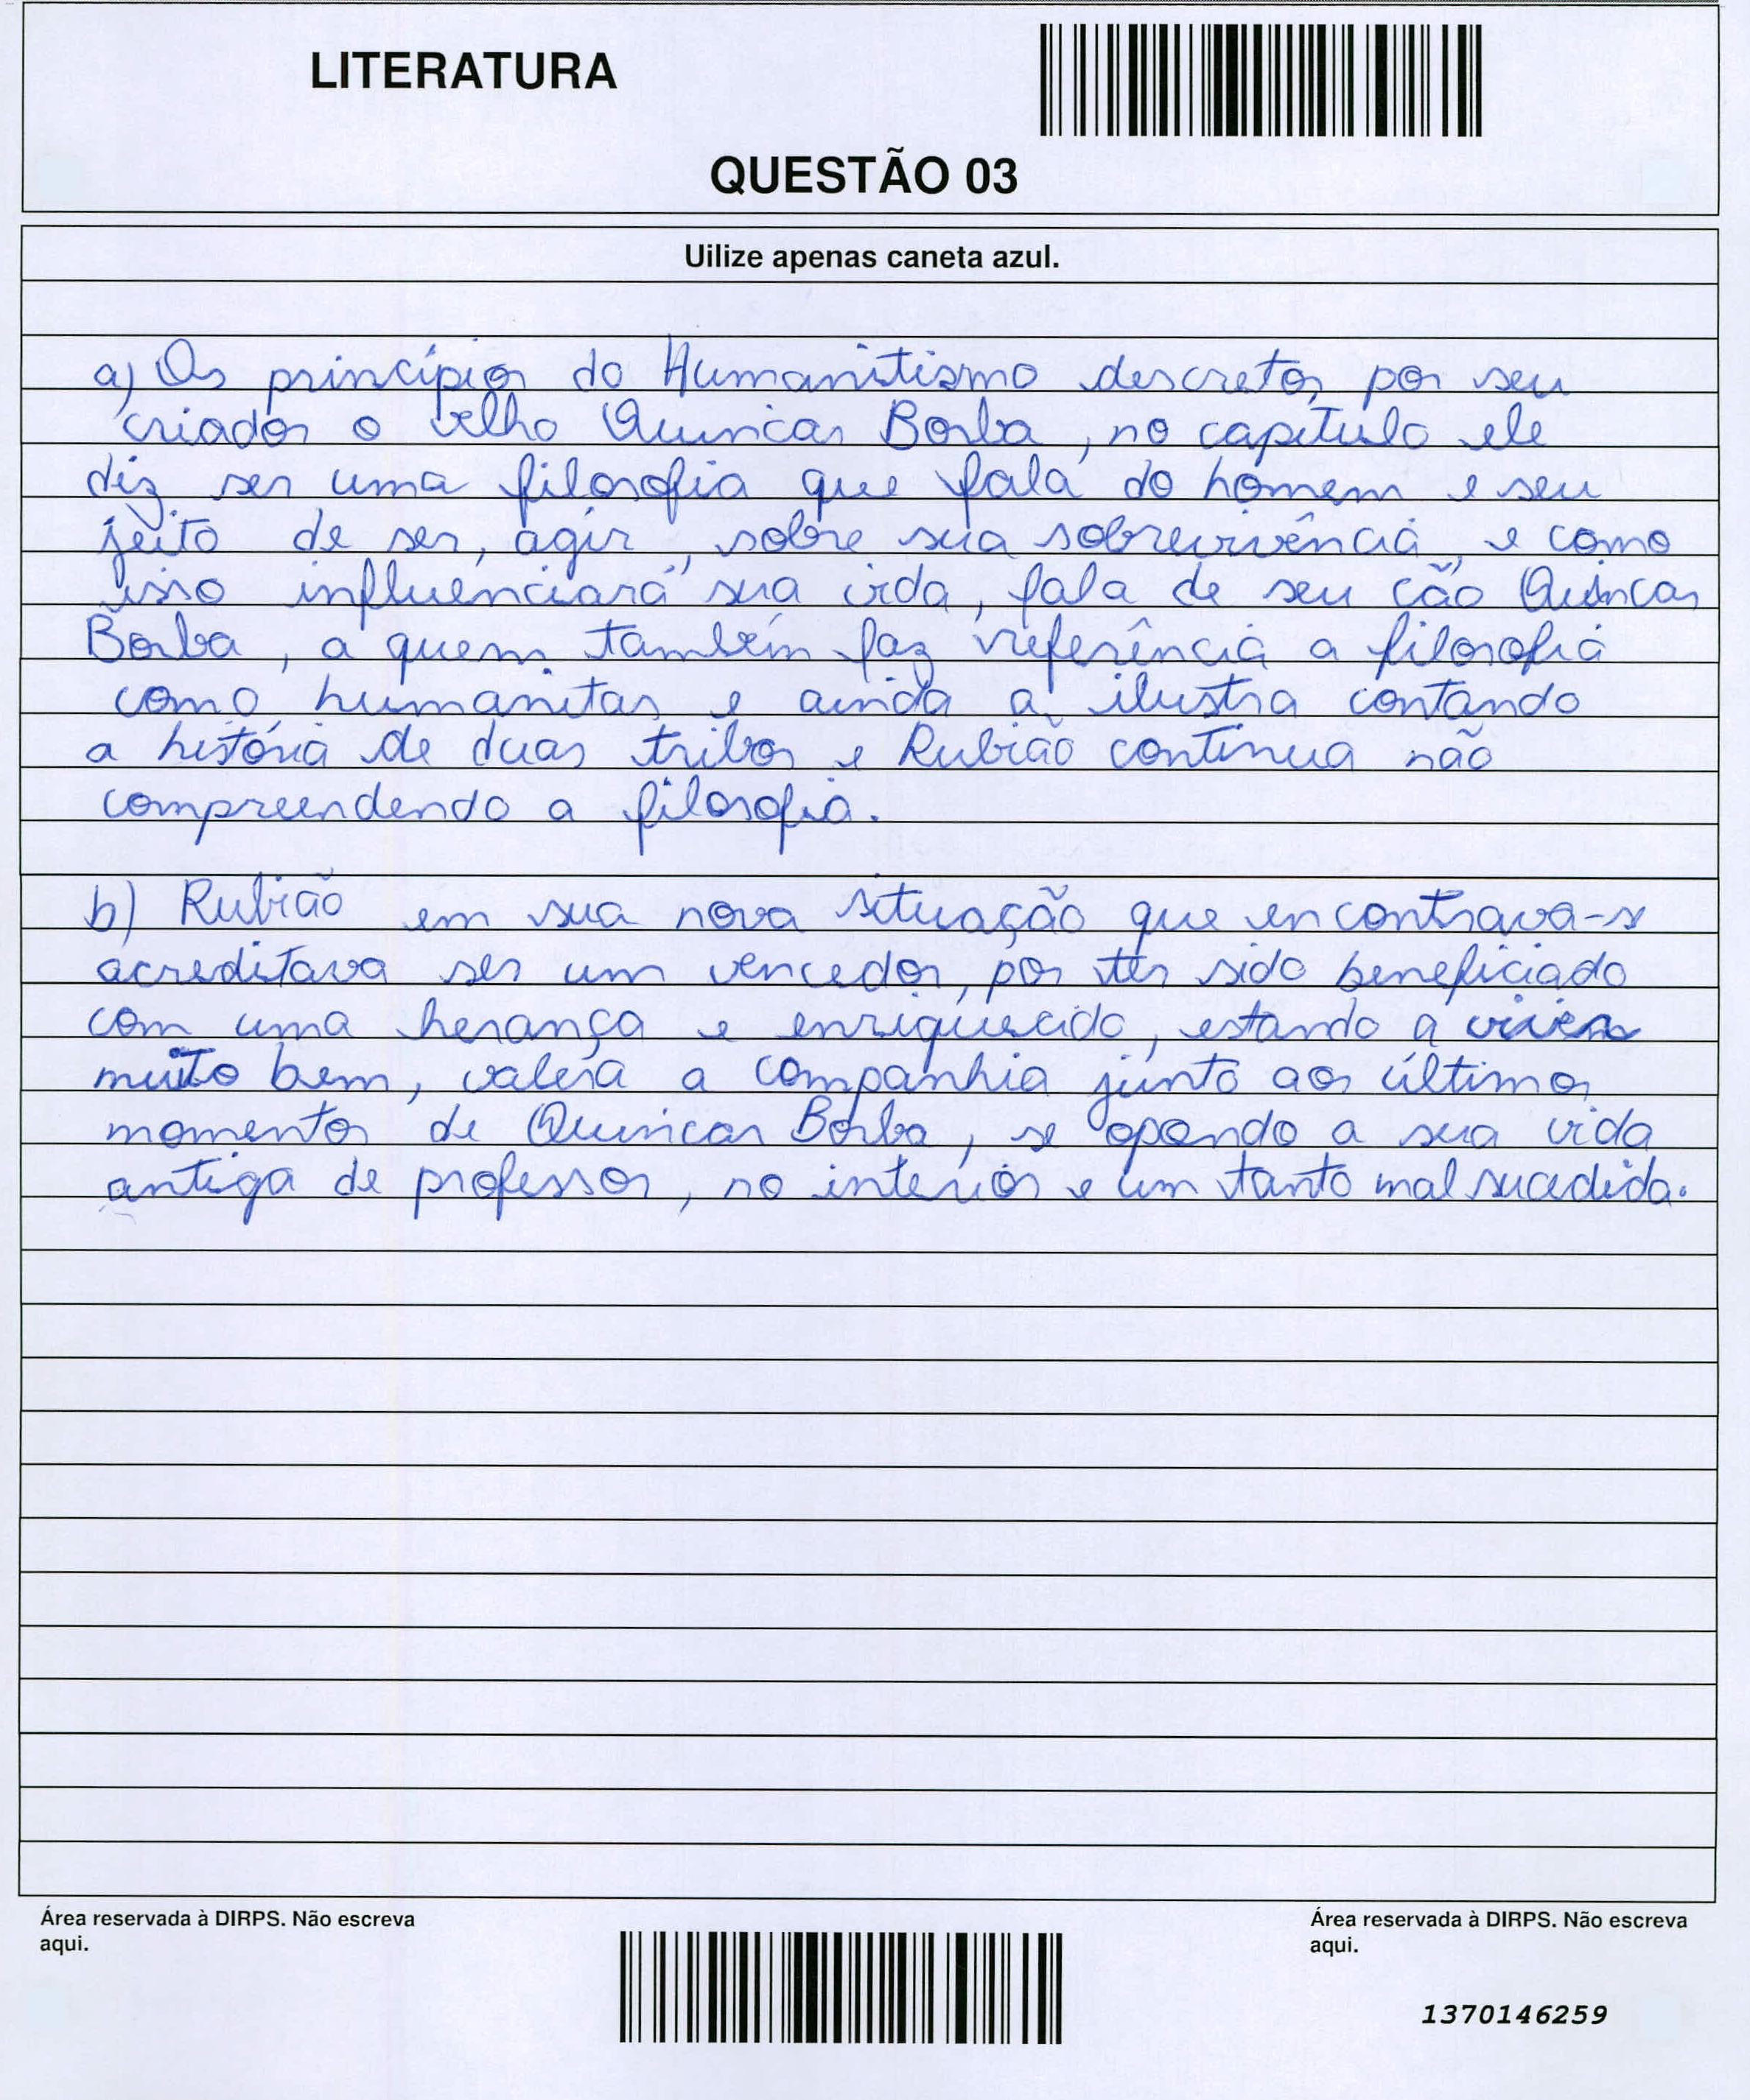 LITERATURA
QUESTÃO 03
Uilize apenas caneta azul.
a) Os princípios do Humanitismo descretos por seu
criador o velho Quincas Borba, no capítulo ele
diz ser uma filosofia que fala do homem e seu
jeito de ser, agir, sobre sua sobrevivência, e como
isso influenciará sua vida, fala de seu cão Quincas
Borba, a quem também faz referência a filosofia
como humanitas e ainda a ilustra contando
a história de duas tribos e Rubião continua não
compreendendo a filosofia.
b) Rubião em sua nova situação que encontrava-s
acreditava ser um vencedor, por ter sido beneficiado
com uma herança e enriquecido, estando a viver
muito bem, valera a companhia junto aos últimos
momentos de Quincas Borba, se opondo a sua vida
antiga de professor, no interior e um tanto mal sucedida.
Área reservada à DIRPS. Não escreva
aqui.
Área reservada à DIRPS. Não escreva
aqui.
1370146259